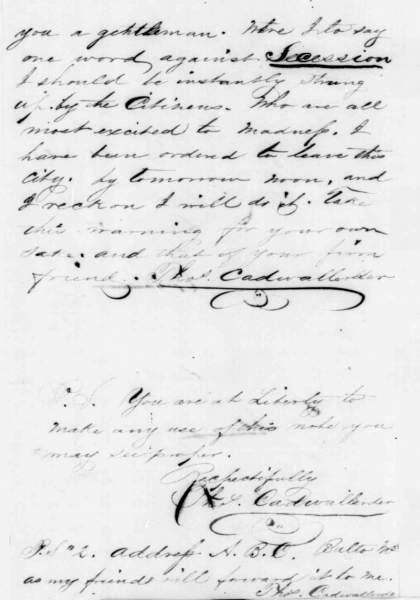 you a gentleman. Were I to say
one word against Secession
I should be instantly strung
up by the Citizens. Who are all
most excited to madness. I
have been ordered to leave this
city. by tomorrow noon, and
I reckon I will do it. Take
this warning for your own
sake. and that of your firm
friend. Thos. Cadwallender
P.S. You are at Liberty to
make any use of this note you
may see proper.
Respectfully
Thos. Cadwallender
P.S. No 2. address A. B. C. Balto Md
as my friends will forward it to me.
Thos. Cadwallender